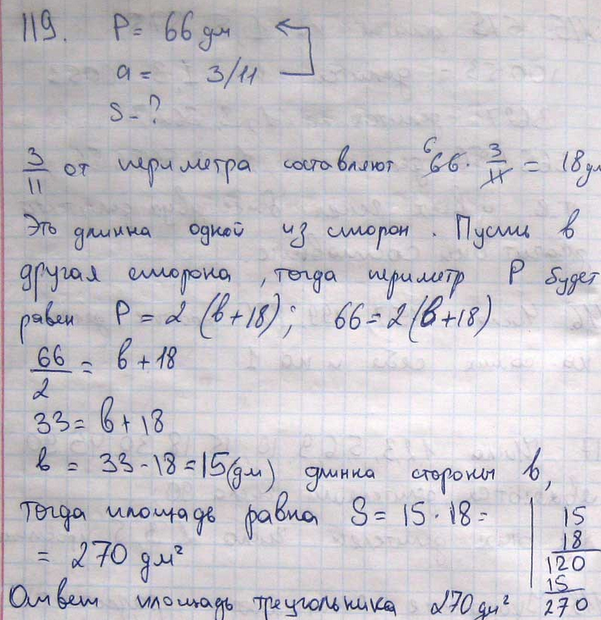 119. P = 66 дм
a = 3/11
S = ?
3/11 от периметра составляют 6 66 · 3/11 = 18 дм
Это длинна одной из сторон. Пусть в
другая сторона, тогда периметр P будет
равен P = 2 (в + 18); 66 = 2 (в + 18)
66/2 = в + 18
33 = в + 18
в = 33 - 18 = 15 (дм) длинна стороны в,
тогда площадь равна S = 15 · 18 =
= 270 дм²
15
18
120
15
270
Ответ площадь треугольника 270 дм²